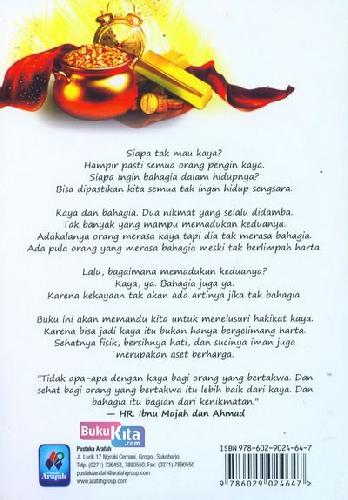 Siapa tak mau kaya?
Hampir pasti semua orang pengin kaya.
Siapa ingin bahagia dalam hidupnya?
Bisa dipastikan kita semua tak ingin hidup sengsara.
Kaya dan bahagia. Dua nikmat yang selalu didamba.
Tak banyak yang mampu memadukan keduanya.
Adakalanya orang merasa kaya tapi dia tak merasa bahagia.
Ada pula orang yang merasa bahagia meski tak berlimpah harta
Lalu, bagaimana memadukan keduanya?
Kaya, ya. Bahagia juga ya.
Karena kekayaan tak akan ada artinya jika tak bahagia
Buku ini akan memandu kita untuk menelusuri hakikat kaya.
Karena bisa jadi kaya itu bukan hanya bergelimang harta.
Sehatnya fisik, bersihnya hati, dan sucinya iman juga
merupakan aset berharga.
"Tidak apa-apa dengan kaya bagi orang yang bertakwa. Dan
sehat bagi orang yang bertakwa itu lebih baik dari kaya. Dan
bahagia itu bagian dari kenikmatan."
— HR. Ibnu Majah dan Ahmad
BukuKita
.com
Arafah
Pustaka Arafah
www.arafahgroup.com
ISBN 978-602-9024-64-7
9 786029 024647